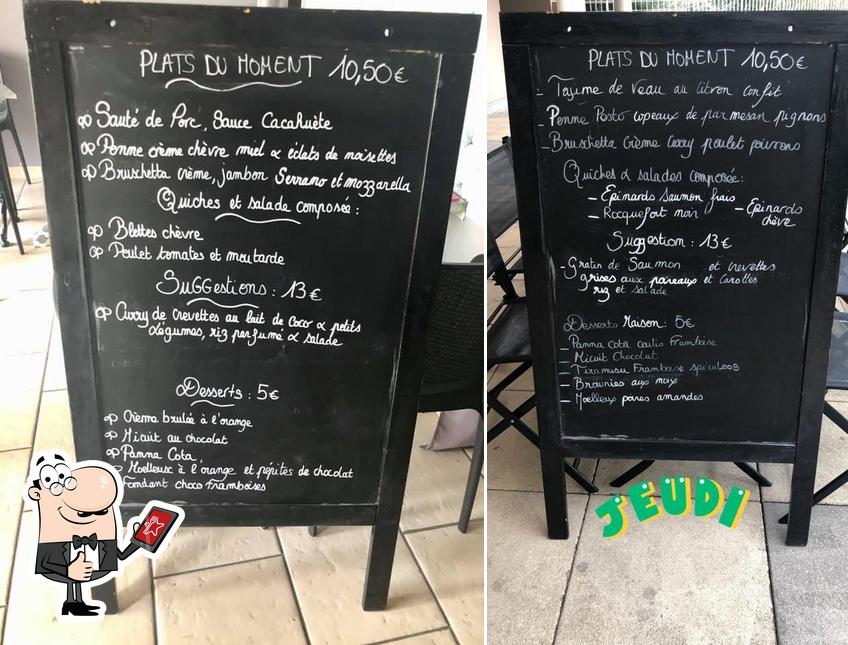 PLATS DU MOMENT 10,50€
Sauté de Porc, Sauce Cacahuète
Penne crème chèvre miel & éclats de noisettes
Bruschetta crème, jambon Serrano et mozzarella
Quiches et salade composée :
Blettes chèvre
Poulet tomates et moutarde
SUGGESTIONS : 13€
Curry de crevettes au lait de coco & petits
légumes, riz parfumé & salade
Desserts : 5€
Crème brulée à l'orange
Micuit au chocolat
Panna Cota,
Moelleux à l'orange et pépites de chocolat
Fondant choco framboises
PLATS DU MOMENT 10,50€
- Tajine de veau au citron confit
- Penne Pesto copeaux de parmesan pignons
- Bruschetta Crème Curry poulet poivrons
Quiches & salades composée :
- Epinards Saumon frais
- Rocquefort noix - Epinards
chèvre
Suggestion : 13€
- Gratin de Saumon et crevettes
grises aux poireaux et carottes
riz et salade
Desserts Maison : 5€
- Panna cota coulis Framboise
- Micuit Chocolat
- Tiramisu Framboise spéculoos
- Brownies aux noix
- Moelleux poires amandes
JEUDI